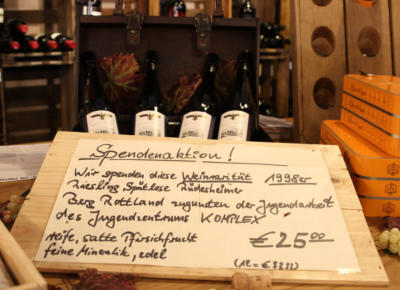 Spendenaktion!
Wir spenden diese Weinrarität 1998er
Riesling Spätlese Rüdesheimer
Berg Rottland zugunsten der Jugendarbeit
des Jugendzentrums KOMPLEX!
reife, satte Pfirsichfrucht € 25.00
feine Mineralik, edel